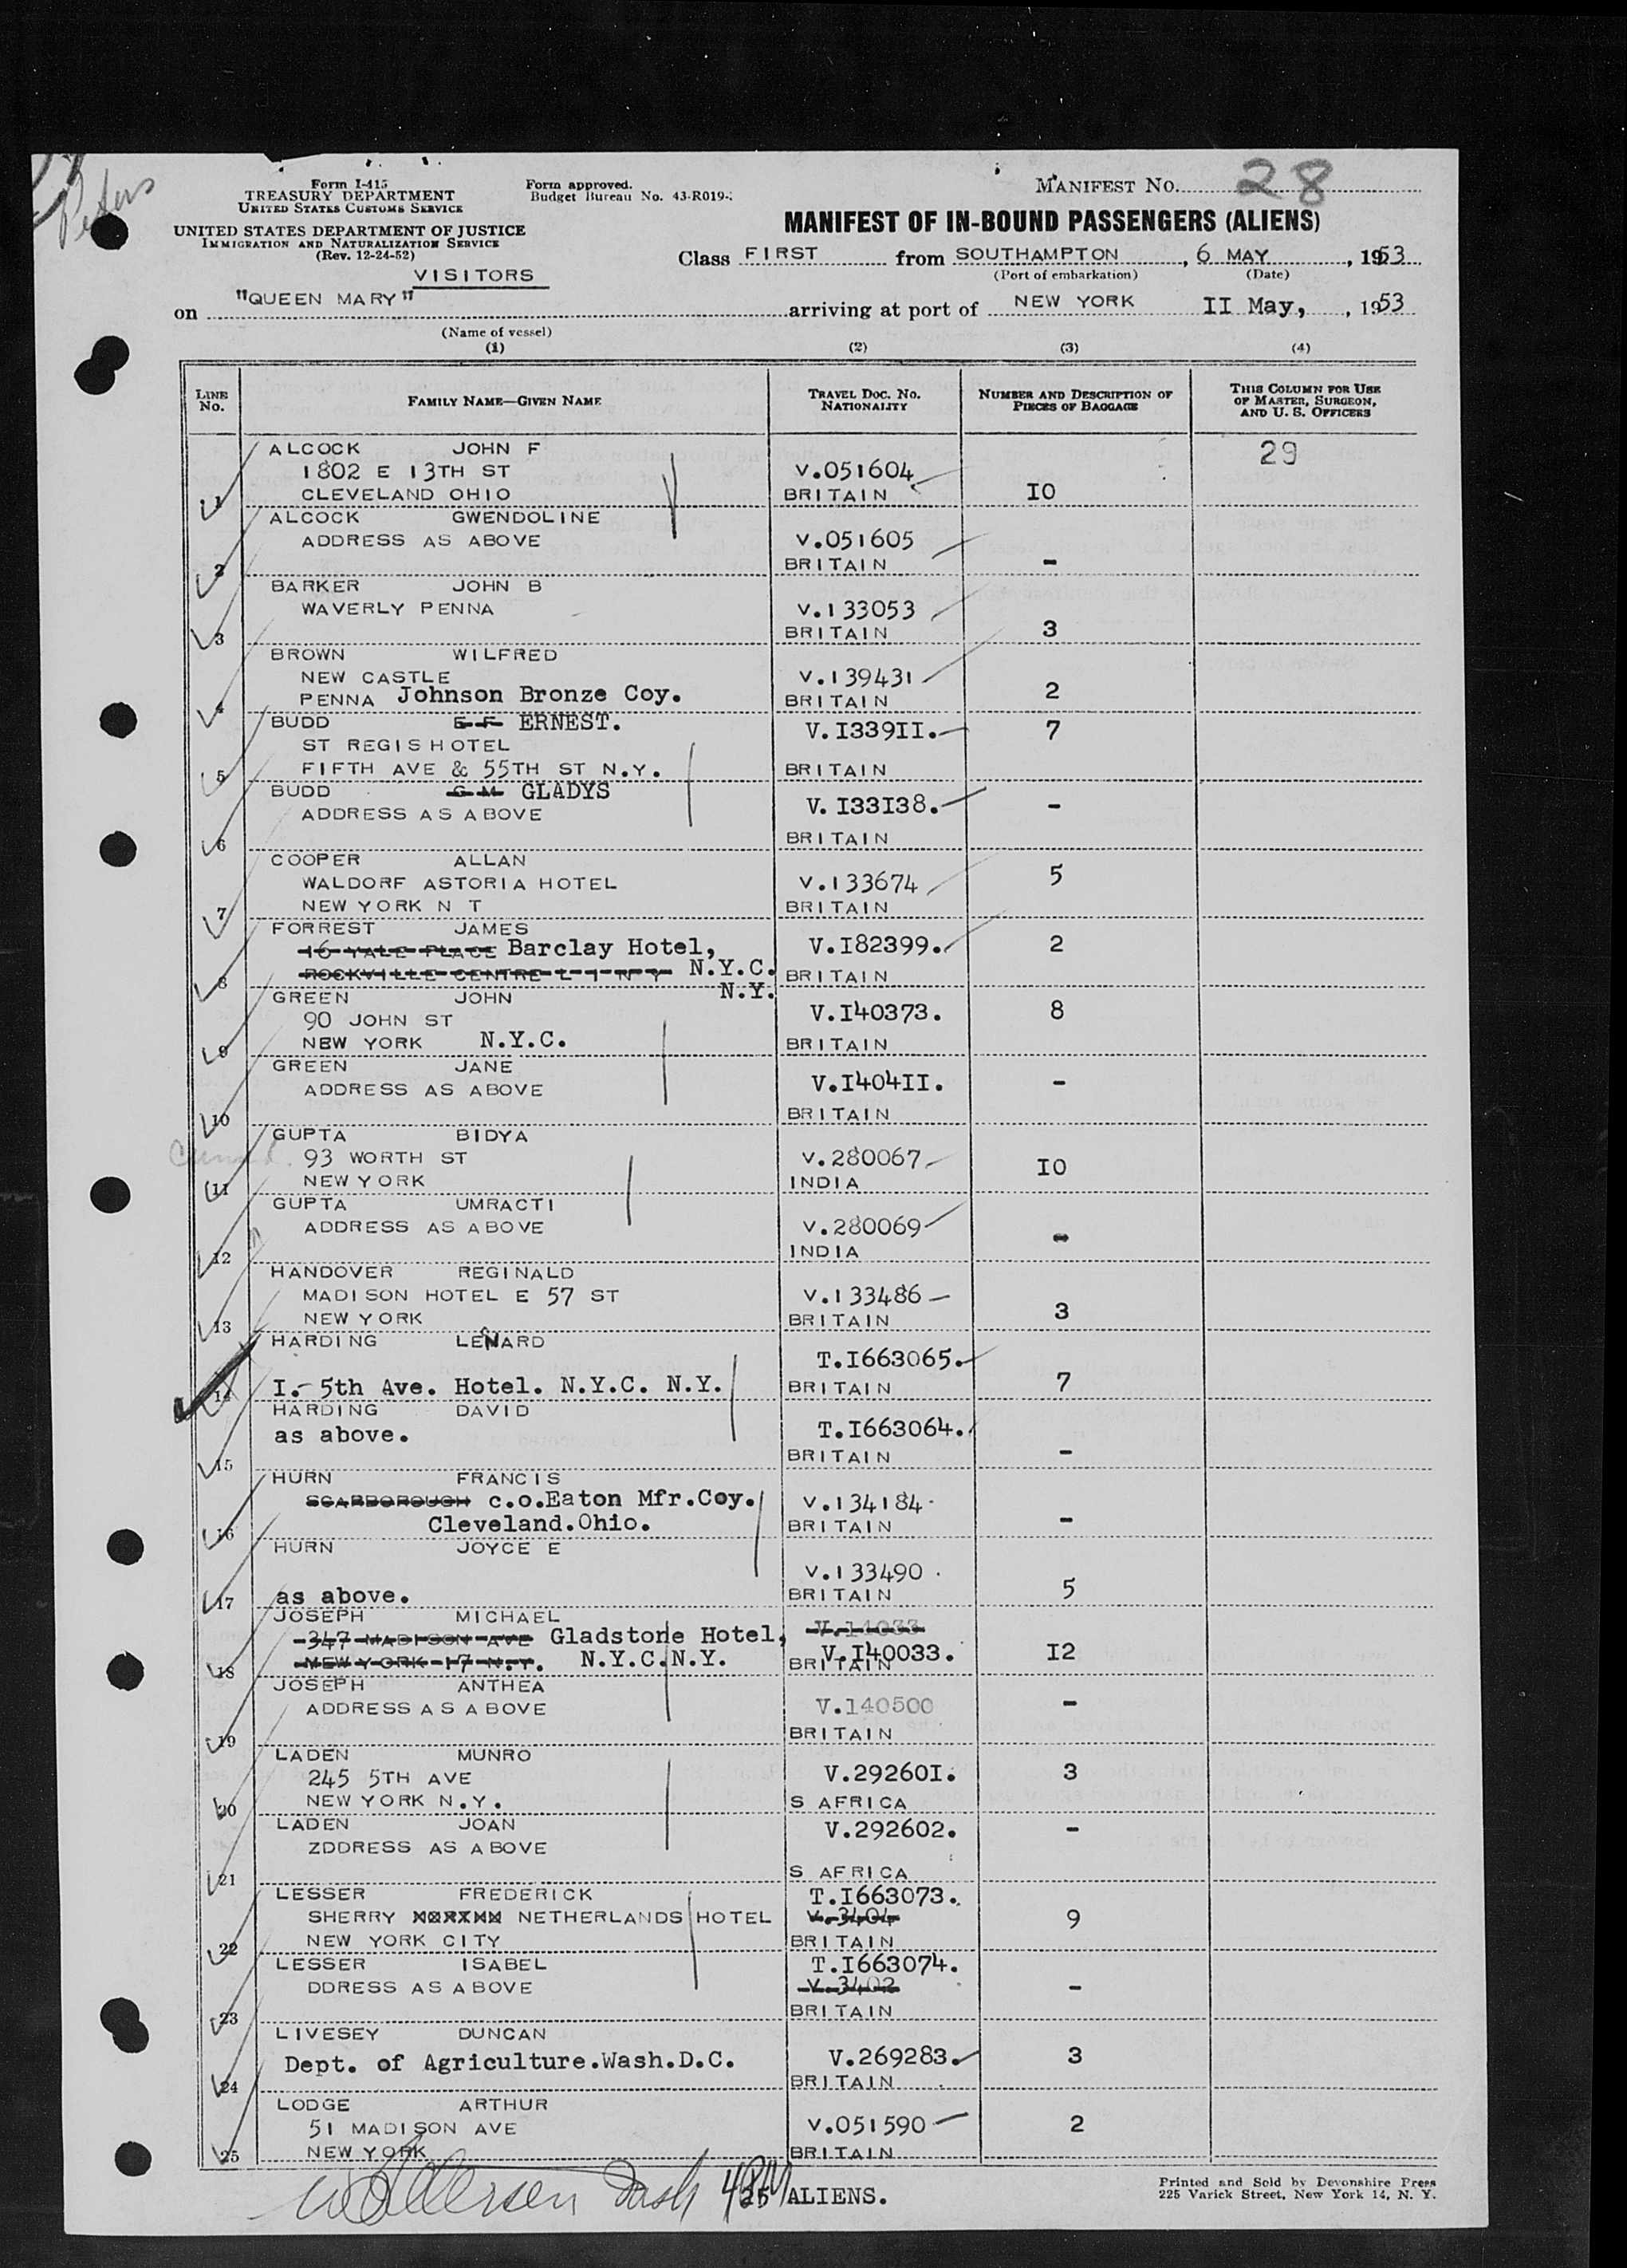 Peters
Form I-415
TREASURY DEPARTMENT
UNITED STATES CUSTOMS SERVICE
UNITED STATES DEPARTMENT OF JUSTICE
IMMIGRATION AND NATURALIZATION SERVICE
(Rev. 12-24-52)
Form approved.
Budget Bureau No. 43-R019-
MANIFEST NO. 28
MANIFEST OF IN-BOUND PASSENGERS (ALIENS)
Class FIRST from SOUTHAMPTON, 6 MAY, 1953
(Port of embarkation) (Date)
VISITORS
on "QUEEN MARY" arriving at port of NEW YORK II May, , 1953
(Name of vessel)
(1) (2) (3) (4)
LINE NO. FAMILY NAME—GIVEN NAME TRAVEL DOC. NO. NATIONALITY NUMBER AND DESCRIPTION OF PIECES OF BAGGAGE THIS COLUMN FOR USE OF MASTER, SURGEON, AND U. S. OFFICERS
ALCOCK JOHN F 29
1802 E 13TH ST V.051604
1 CLEVELAND OHIO BRITAIN IO
ALCOCK GWENDOLINE
ADDRESS AS ABOVE V.051605
2 BRITAIN -
BARKER JOHN B
WAVERLY PENNA V.133053
3 BRITAIN 3
BROWN WILFRED
NEW CASTLE V.139431
4 PENNA Johnson Bronze Coy. BRITAIN 2
BUDD E F ERNEST. V.I339II. 7
ST REGIS HOTEL
5 FIFTH AVE & 55TH ST N.Y. BRITAIN
BUDD G M GLADYS V. I33I38. -
ADDRESS AS ABOVE
6 BRITAIN
COOPER ALLAN
WALDORF ASTORIA HOTEL V.133674 5
7 NEW YORK N T BRITAIN
FORREST JAMES
16 YALE PLACE Barclay Hotel, V.I82399. 2
8 ROCKVILLE CENTRE L I N Y N.Y.C. BRITAIN
N.Y.
GREEN JOHN
90 JOHN ST V.I40373. 8
9 NEW YORK N.Y.C. BRITAIN
GREEN JANE
ADDRESS AS ABOVE V.I404II. -
10 BRITAIN
GUPTA BIDYA
93 WORTH ST V.280067 IO
11 NEW YORK INDIA
GUPTA UMRACTI
ADDRESS AS ABOVE V.280069 -
12 INDIA
HANDOVER REGINALD
MADISON HOTEL E 57 ST V.133486 3
13 NEW YORK BRITAIN
HARDING LENARD
T.I663065.
14 I.- 5th Ave. Hotel. N.Y.C. N.Y. BRITAIN 7
HARDING DAVID
as above. T.I663064.
15 BRITAIN -
HURN FRANCIS
SCARBOROUGH c.o.Eaton Mfr.Coy. V.134184
16 Cleveland.Ohio. BRITAIN -
HURN JOYCE E
V.133490
17 as above. BRITAIN 5
JOSEPH MICHAEL V.14033
347 MADISON AVE Gladstone Hotel, V.I40033. I2
18 NEW YORK 17 N.Y. N.Y.C.N.Y. BRITAIN
JOSEPH ANTHEA
ADDRESS AS ABOVE V.140500 -
19 BRITAIN
LADEN MUNRO
245 5TH AVE V.29260I. 3
20 NEW YORK N.Y. S AFRICA
LADEN JOAN V.292602. -
ZDDRESS AS ABOVE
21 S AFRICA
LESSER FREDERICK T.I663073.
SHERRY NETHERLANDS HOTEL V.3404 9
22 NEW YORK CITY BRITAIN
LESSER ISABEL T.I663074.
DDRESS AS ABOVE V.3402 -
23 BRITAIN
LIVESEY DUNCAN
Dept. of Agriculture.Wash.D.C. V.269283. 3
24 BRITAIN
LODGE ARTHUR
51 MADISON AVE V.051590 2
25 NEW YORK BRITAIN
25 ALIENS.
Printed and Sold by Devonshire Press
225 Varick Street, New York 14, N. Y.